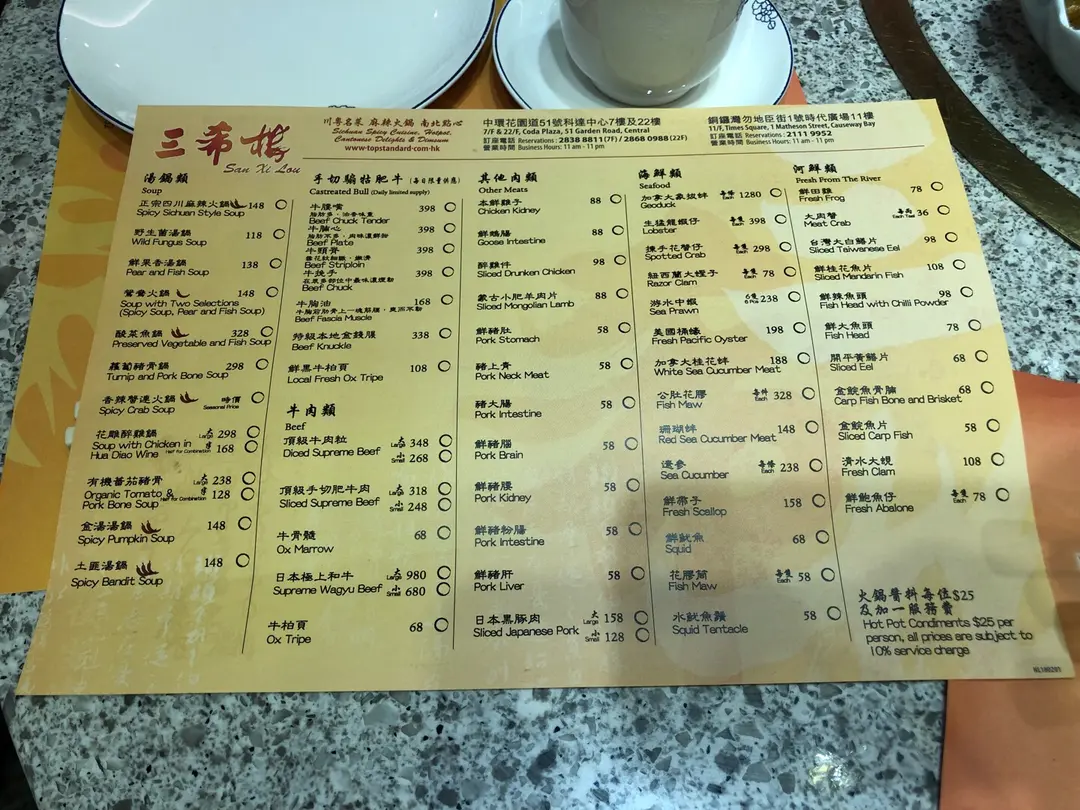 三希樓
San Xi Lou
川粵名菜 麻辣火鍋 南北點心
Sichuan Spicy Cuisine, Hotpot,
Cantonese Delights & Dimsum
www.topstandard-com-hk
中環花園道51號科達中心7樓及22樓
7/F & 22/F, Coda Plaza, 51 Garden Road, Central
訂座電話 Reservations : 2838 8811(7F) / 2868 0988 (22F)
營業時間 Business Hours: 11 am - 11 pm
銅鑼灣勿地臣街1號時代廣場11樓
11/F, Times Square, 1 Matheson Street, Causeway Bay
訂座電話 Reservations : 2111 9952
營業時間 Business Hours: 11 am - 11 pm
湯鍋類
Soup
正宗四川麻辣火鍋 148
Spicy Sichuan Style Soup
野生菌湯鍋 118
Wild Fungus Soup
鮮果香湯鍋 138
Pear and Fish Soup
鴛鴦火鍋 148
Soup with Two Selections
(Spicy Soup, Pear and Fish Soup)
酸菜魚鍋 328
Preserved Vegetable and Fish Soup
蘿蔔豬骨鍋 298
Turnip and Pork Bone Soup
香辣蟹邊火鍋 時價
Spicy Crab Soup Seasonal Price
花雕醉雞鍋 大 Large 298
Soup with Chicken in
Hua Diao Wine 半 Half for Combination 168
有機蕃茄豬骨 大 Large 238
Organic Tomato &
Pork Bone Soup 半 Half for Combination 128
金湯湯鍋 148
Spicy Pumpkin Soup
土匪湯鍋 148
Spicy Bandit Soup
手切騸牯肥牛 (每日限量供應)
Castreated Bull (Daily limited supply)
牛膛嘴 398
脂肪多，油香味重
Beef Chuck Tender
牛腩心 398
Beef Plate
牛頸脊 398
Beef Striploin
牛挑手 398
Beef Chuck
牛胸油 168
Beef Fascia Muscle
特級本地金錢𦟌 338
Beef Knuckle
鮮黑牛柏頁 108
Local Fresh Ox Tripe
牛肉類
Beef
頂級牛肉粒 大 Large 348
Diced Supreme Beef 小 Small 268
頂級手切肥牛肉 大 Large 318
Sliced Supreme Beef 小 Small 248
牛骨髓 68
Ox Marrow
日本極上和牛 大 Large 980
Supreme Wagyu Beef 小 Small 680
牛柏頁 68
Ox Tripe
其他肉類
Other Meats
本鮮雞子 88
Chicken Kidney
鮮鵝腸 88
Goose Intestine
醉雞件 98
Sliced Drunken Chicken
蒙古小肥羊肉片 88
Sliced Mongolian Lamb
鮮豬肚 58
Pork Stomach
豬上青 58
Pork Neck Meat
豬大腸 58
Pork Intestine
鮮豬腦 58
Pork Brain
鮮豬腰 58
Pork Kidney
鮮豬粉腸 58
Pork Intestine
鮮豬肝 58
Pork Liver
日本黑豚肉 大 Large 158
Sliced Japanese Pork 小 Small 128
海鮮類
Seafood
加拿大象拔蚌 每條 Each 1280
Geoduck
生猛龍蝦仔 每隻 Each 398
Lobster
揀手花蟹仔 每隻 Each 298
Spotted Crab
紐西蘭大蟶子 每隻 Each 78
Razor Clam
游水中蝦 6隻 6 Pcs 238
Sea Prawn
美國桶蠔 198
Fresh Pacific Oyster
加拿大桂花蚌 188
White Sea Cucumber Meat
公肚花膠 每件 Each 328
Fish Maw
珊瑚蚌 148
Red Sea Cucumber Meat
遼參 每條 Each 238
Sea Cucumber
鮮帶子 158
Fresh Scallop
鮮魷魚 68
Squid
花膠筒 每隻 Each 58
Fish Maw
水魷魚鬚 58
Squid Tentacle
河鮮類
Fresh From The River
鮮田雞 78
Fresh Frog
大肉蟹 每両 Each Tael 36
Meat Crab
台灣大白鱔片 98
Sliced Taiwanese Eel
鮮桂花魚片 108
Sliced Mandarin Fish
鮮辣魚頭 98
Fish Head with Chilli Powder
鮮大魚頭 78
Fish Head
開平黃鱔片 68
Sliced Eel
盒錠魚骨腩 68
Carp Fish Bone and Brisket
盒錠魚片 58
Sliced Carp Fish
清水大蜆 108
Fresh Clam
鮮鮑魚仔 每隻 Each 78
Fresh Abalone
火鍋醬料每位$25
及加一服務費
Hot Pot Condiments $25 per
person, all prices are subject to
10% service charge